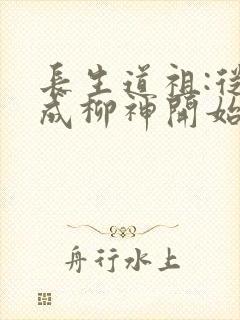 長生道祖:從
成柳神開始
舟行水上